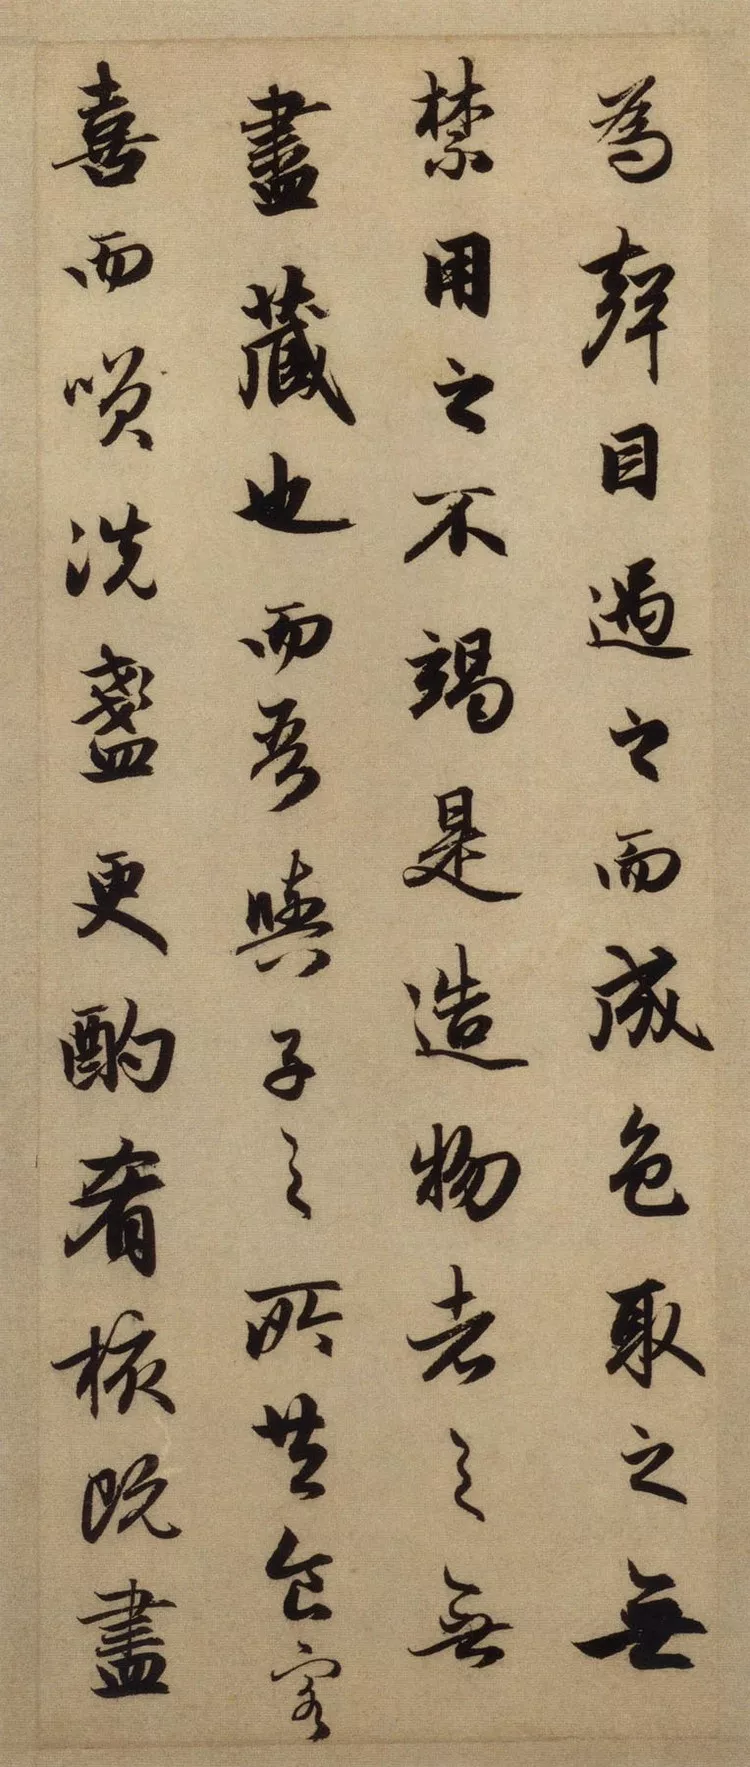 為聲目遇之而成色取之無
禁用之不竭是造物者之無
盡藏也而吾與子之所共食客
喜而咲洗盞更酌肴核既盡